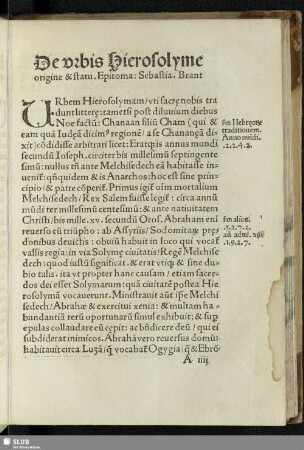 De vrbis Hierosolyme
origine & statu. Epitoma: Sebastia. Brant
URbem Hierosolymam/ vti sacrę nobis tra
dunt litterę: tametsi post diluuium diebus
Noe factū: Chanaan filiū Cham (qui &
eam quā Iudeā dicimꝰ regionē/ a se Chananęā di-
xit) cōdidisse arbitrari licet: Eratqꝫ is annus mundi
secundū Ioseph. circiter bis millesimū septingente
simū: nullus tñ ante Melchisedech eā habitasse in-
uenit: qñquidem & is Anarchos: hoc est sine prin-
cipio/ & patre cōperit. Primus igit̃ oīm mortalium
Melchisedech/ Rex Salem fuisse legit̃: circa annū
mūdi ter millesimū centesimū: & ante natiuitatem
Christi. bis mille. xv. secundū Oros. Abraham enī
reuerso eū triūpho: ab Assyriis/ Sodomitaꝝ pre-
donibus deuictis: obuiā habuit in loco qui vocat̃
vassis regia: in via Solymę ciuitatis/ Regē Melchi-
sedech: quod iustū significat. & erat vtiqꝫ & sine du
bio talis. ita vt propter hanc causam/ etiam sacer-
dos dei esset Solymarum: quā ciuitatē postea Hie
rosolymā vocauerunt. Ministrauit aūt ip̄e Melchi
sedech/ Abrahę & exercitui xenia: & multam ha-
bundantiā rerū oportunarū simul exhibuit: & sup
epulas collaudare eū cępit: ac bñdicere deū/ qui ei
subdiderat inimicos. Abrahā vero reuersus domū:
habitauit circa Luzā/ q̄ vocabat̃ Ogygia: q̄ & Ebrō
A iiij
sm Hebreorꝫ
traditionem.
Anno mūdi.
.2.2.4.2.
sm alios.
.5.2.7.2.
.1.9.2.7.
SLUB